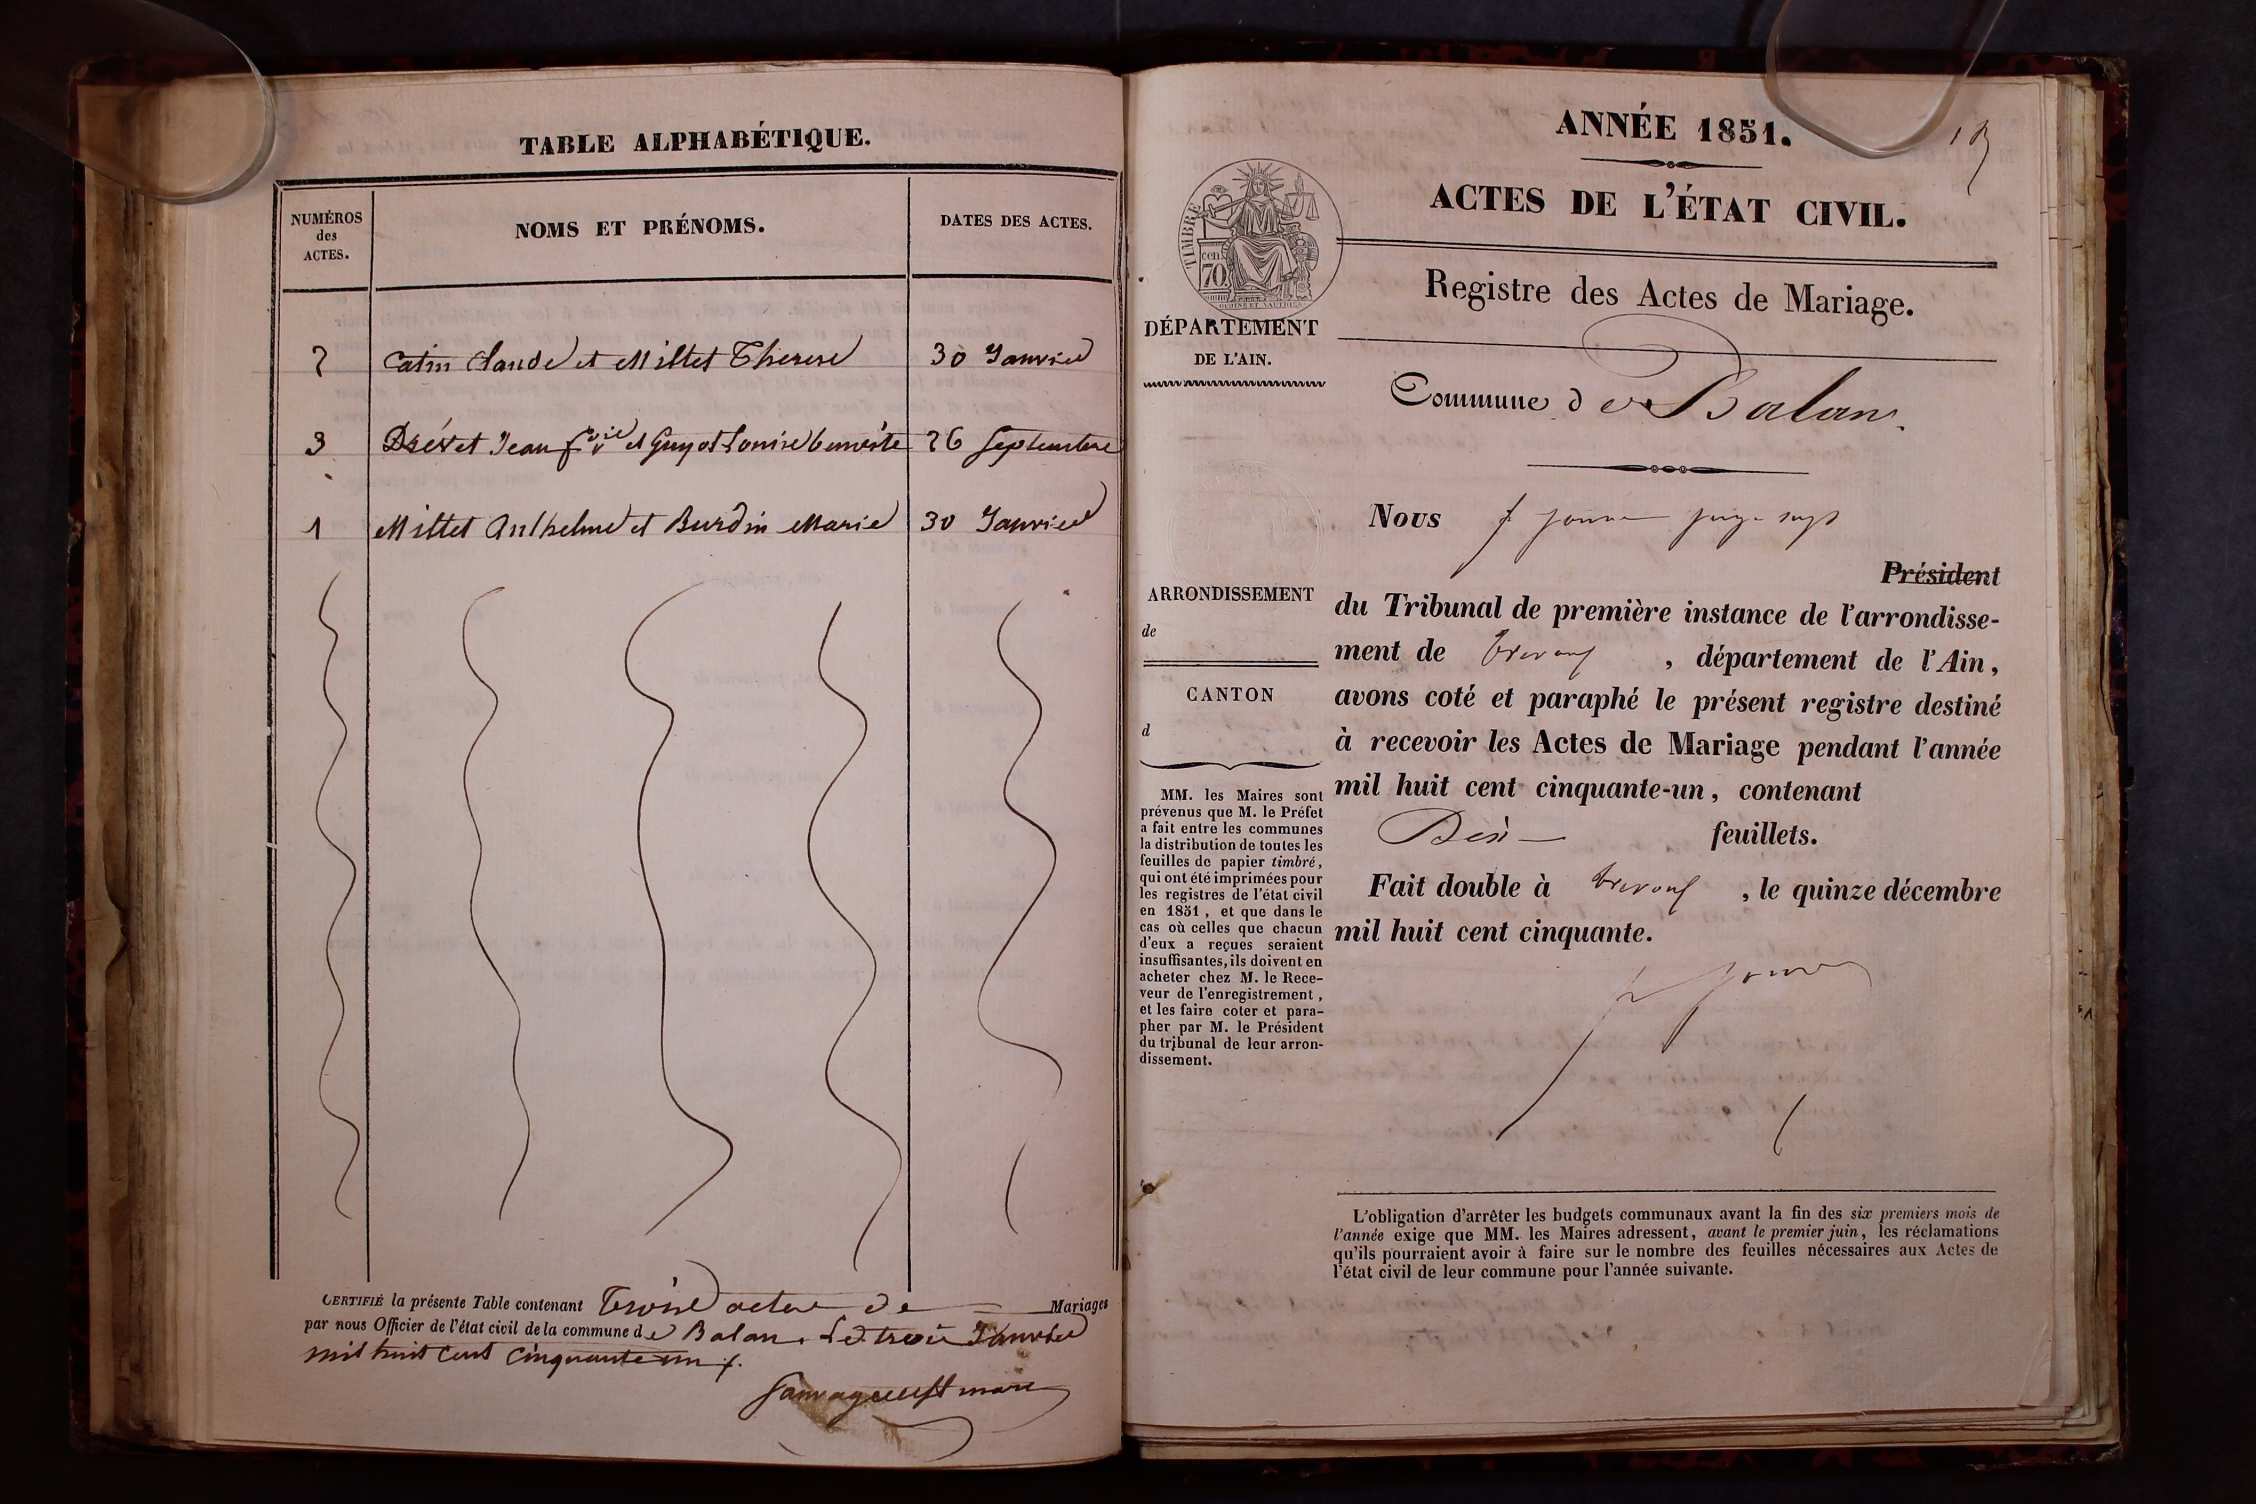 TABLE ALPHABÉTIQUE.
NUMÉROS
des
ACTES.
NOMS ET PRÉNOMS.
DATES DES ACTES.
2 Catin Claude et Millet Therese 30 Janvier
3 Drevet Jean et Guyot Louise benoite 26 Septembre
1 Millet Anthelme et Burdin Marie 30 Janvier
CERTIFIÉ la présente Table contenant Trois actes de Mariages
par nous Officier de l'état civil de la commune de Balan. Le trois Janvier
mil huit Cent Cinquante un
maire
ANNÉE 1851.
ACTES DE L'ÉTAT CIVIL.
TIMBRE
cen.
70.
Registre des Actes de Mariage.
DÉPARTEMENT
DE L'AIN.
Commune de Balan.
Nous
Président
ARRONDISSEMENT
de
CANTON
d
MM. les Maires sont
prévenus que M. le Préfet
a fait entre les communes
la distribution de toutes les
feuilles de papier timbré,
qui ont été imprimées pour
les registres de l'état civil
en 1851, et que dans le
cas où celles que chacun
d'eux a reçues seraient
insuffisantes, ils doivent en
acheter chez M. le Rece-
veur de l'enregistrement,
et les faire coter et para-
pher par M. le Président
du tribunal de leur arron-
dissement.
du Tribunal de première instance de l'arrondisse-
ment de Trevoux, département de l'Ain,
avons coté et paraphé le présent registre destiné
à recevoir les Actes de Mariage pendant l'année
mil huit cent cinquante-un, contenant
Dix feuillets.
Fait double à Trevoux, le quinze décembre
mil huit cent cinquante.
L'obligation d'arrêter les budgets communaux avant la fin des six premiers mois de
l'année exige que MM. les Maires adressent, avant le premier juin, les réclamations
qu'ils pourraient avoir à faire sur le nombre des feuilles nécessaires aux Actes de
l'état civil de leur commune pour l'année suivante.